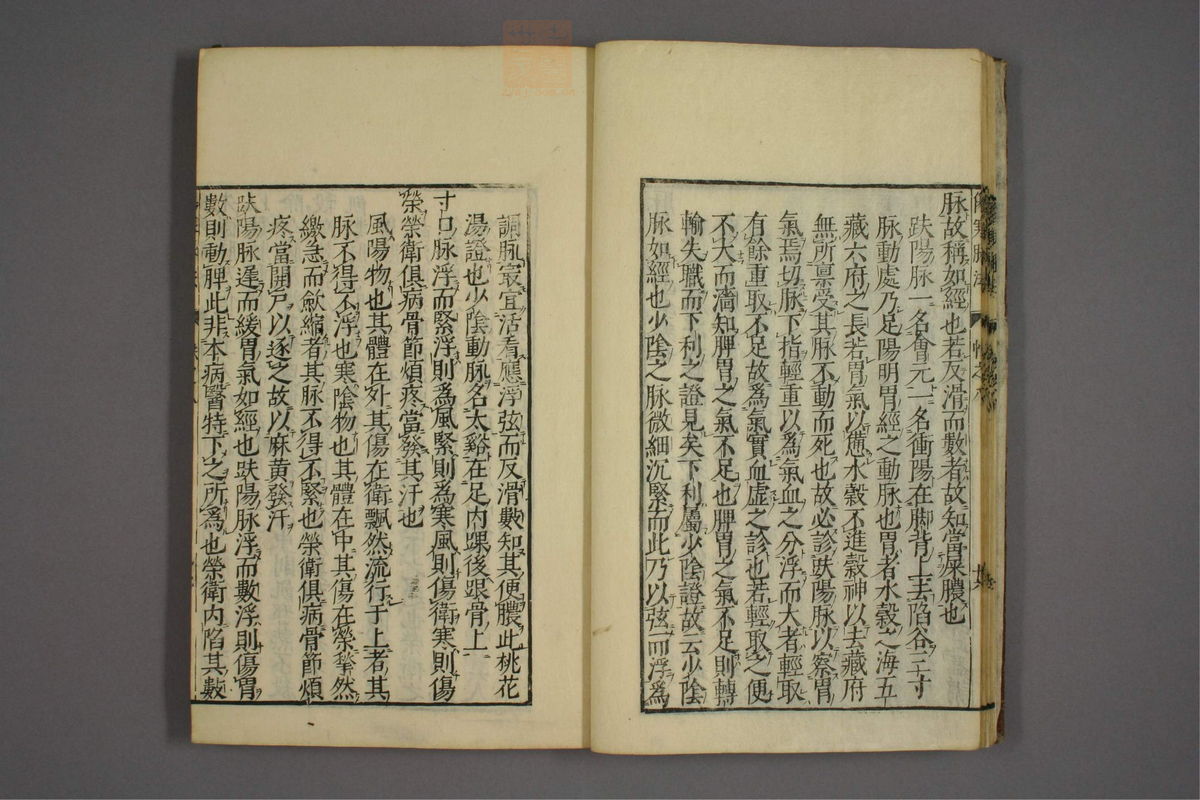 脉故稱如經也若反滑而數者故知當屎膿也
趺陽脉一名會元一名衝陽在脚背上去陷谷三寸
脉動處乃足陽明胃經之動脉也胃者水穀之海五
藏六府之長若胃氣以憊水穀不進穀神以去藏府
無所禀受其脉不動而死也故必診趺陽脉以察胃
氣焉切脉下指輕重以為氣血之分浮而大者輕取
有餘重取不足故為氣實血虛之診也若輕取之便
不大而濇知脾胃之氣不足也脾胃之氣不足則轉
輸失職而下利之證見矣下利屬少陰證故云少陰
脉如經也少陰之脉微細沉緊而此乃以弦而浮為
調脉寂宜活看應浮弦而反滑數知其便膿此桃花
湯證也少陰動脉名太谿在足内踝後跟骨上
寸口脉浮而緊浮則為風緊則為寒風則傷衛寒則傷
榮榮衛俱病骨節煩疼當發其汗也
風陽物也其體在外其傷在衛飄然流行于上者其
脉不得不浮也寒陰物也其體在中其傷在榮拏然
繳急而歛縮者其脉不得不緊也榮衛俱病骨節煩
疼當開戶以逐之故以麻黄發汗
趺陽脉遲而緩胃氣如經也趺陽脉浮而數浮則傷胃
數則動脾此非本病醫特下之所為也榮衛内陷其數